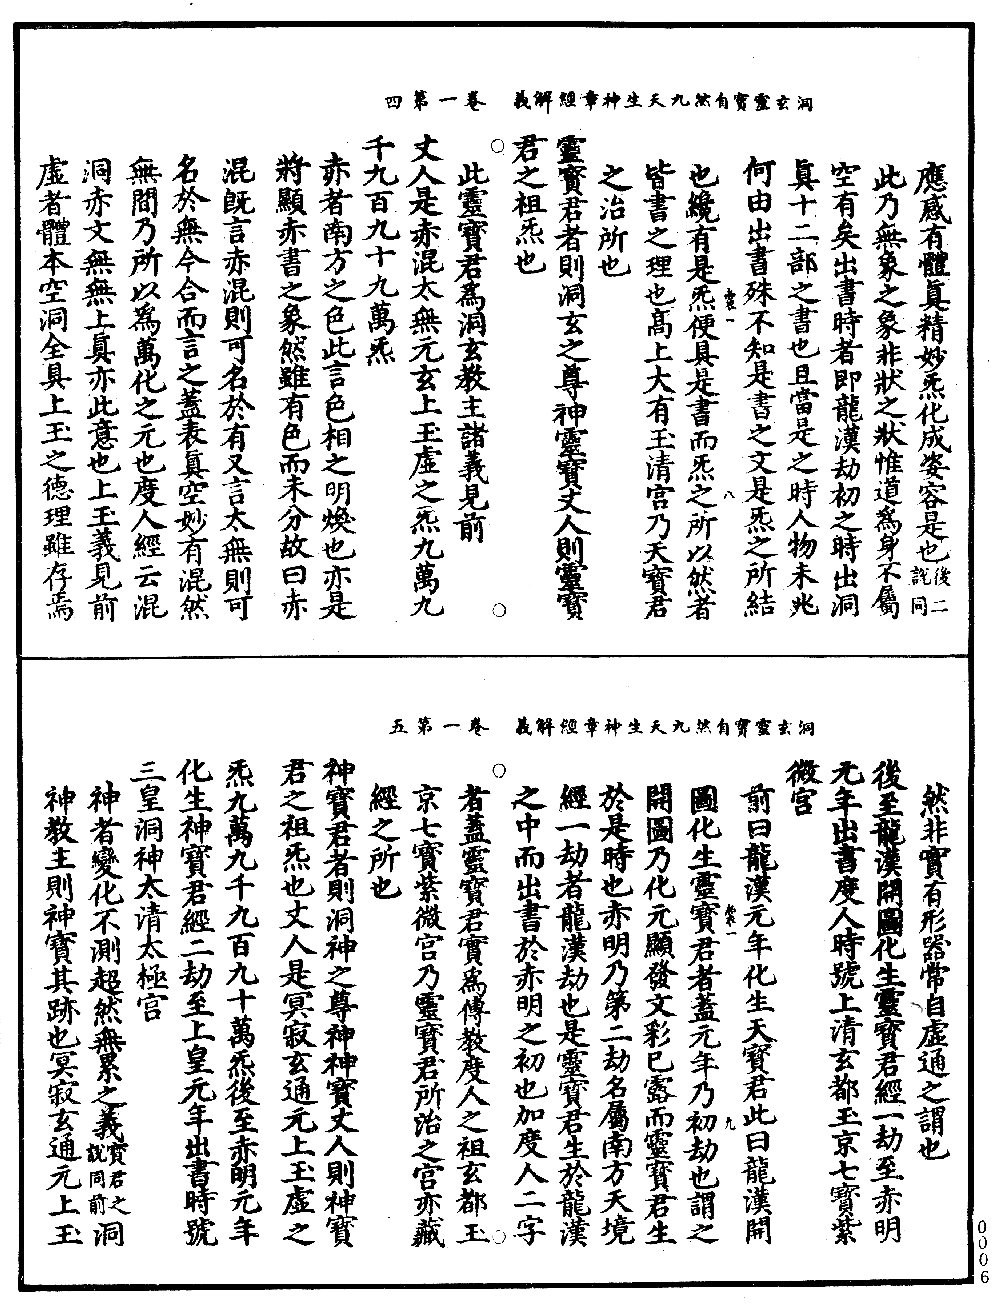 洞玄靈寶自然九天生神章經解義　卷一第四
應感有體真精妙炁化成姿容是也後二說同
此乃無象之象非狀之狀惟道為身不屬
空有矣出書時者即龍漢劫初之時出洞
真十二部之書也且當是之時人物未兆
何由出書殊不知是書之文是炁之所結
解一　八
也纔有是炁便具是書而炁之所以然者
皆書之理也高上大有玉清宮乃天寶君
之治所也
靈寶君者則洞玄之尊神靈寶丈人則靈寶
君之祖炁也
此靈寶君為洞玄教主諸義見前
丈人是赤混太無元玄上玉虛之炁九萬九
千九百九十九萬炁
赤者南方之色此言色相之明煥也亦是
將顯赤書之象然雖有色而未分故曰赤
混既言赤混則可名於有又言太無則可
名於無今合而言之蓋表真空妙有混然
無間乃所以為萬化之元也度人經云混
洞赤文無無上真亦此意也上玉義見前
虛者體本空洞全具上玉之德理雖存焉
洞玄靈寶自然九天生神章經解義　卷一第五
然非實有形器常自虛通之謂也
後至龍漢開圖化生靈寶君經一劫至赤明
元年出書度人時號上清玄都玉京七寶紫
微宮
前曰龍漢元年化生天寶君此曰龍漢開
解一　九
圖化生靈寶君者蓋元年乃初劫也謂之
開圖乃化元顯發文彩已露而靈寶君生
於是時也赤明乃第二劫名屬南方天境
經一劫者龍漢劫也是靈寶君生於龍漢
之中而出書於赤明之初也加度人二字
者蓋靈寶君實為傳教度人之祖玄都玉
京七寶紫微宮乃靈寶君所治之宮亦藏
經之所也
神寶君者則洞神之尊神神寶丈人則神寶
君之祖炁也丈人是冥寂玄通元上玉虛之
炁九萬九千九百九十萬炁後至赤明元年
化生神寶君經二劫至上皇元年出書時號
三皇洞神太清太極宮
神者變化不測超然無累之義寶君之說同前洞
神教主則神寶其跡也冥寂玄通元上玉
0006